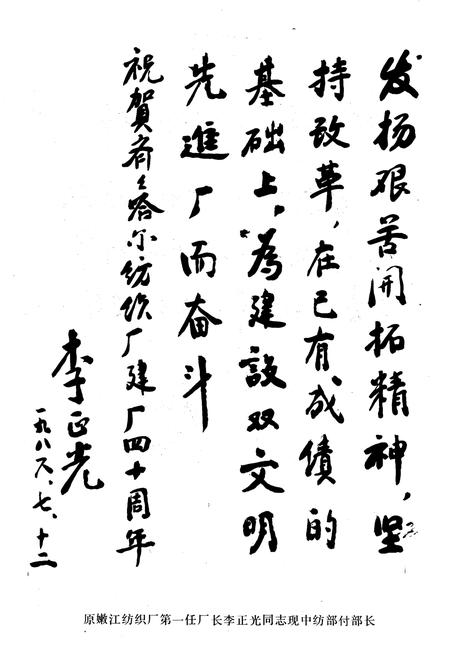 发扬艰苦開拓精神，坚
持改革，在已有成绩的
基础上，為建設双文明
先進厂而奋斗
祝賀齐々哈尔纺织厂建厂四十周年
李正光
一九八六、七、十二
原嫩江纺织厂第一任厂长李正光同志现中纺部付部长